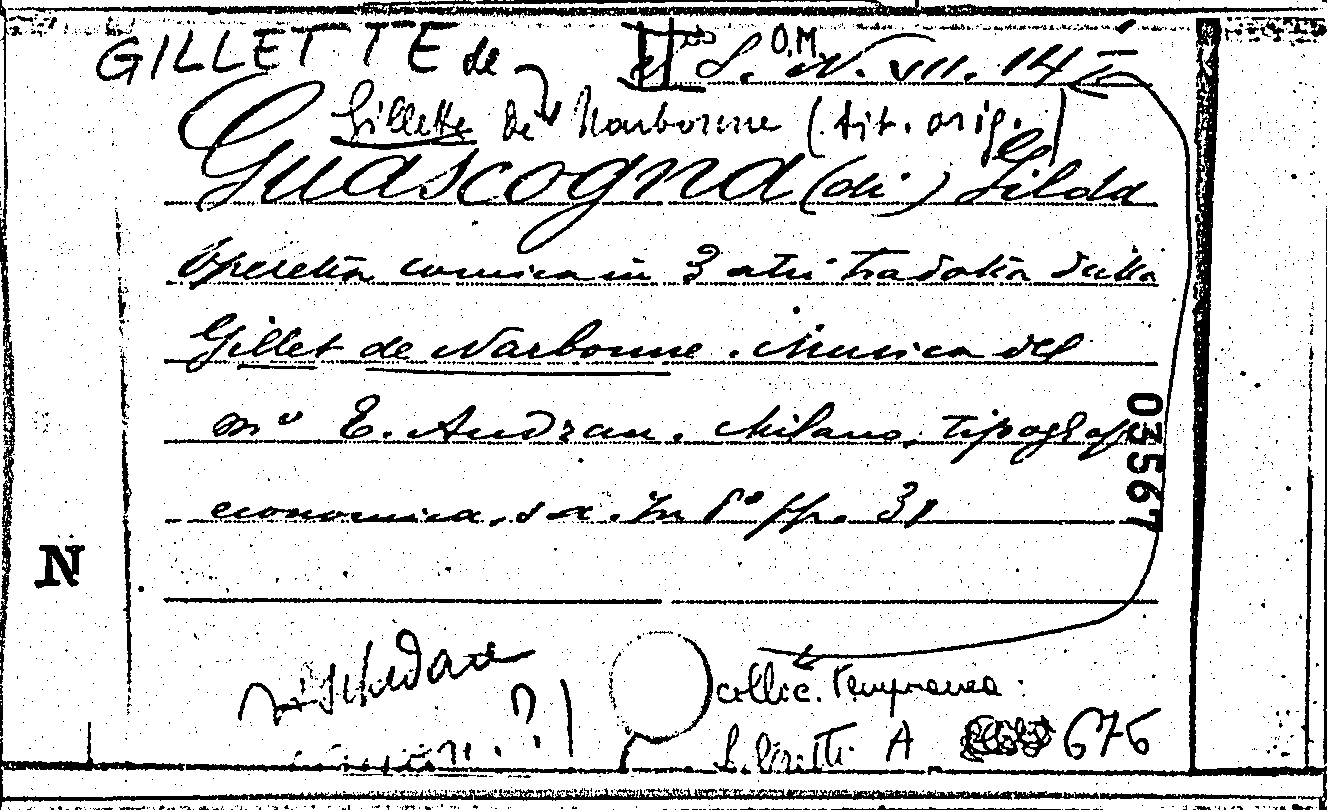 GILLETTE de
S. O.M. N. VII. 14
Gillette de Narbonne (tit. orig.)
Guascogna (di) Gilda
Operetta comica in 3 atti tradotta dalla
Gillet de Narbonne. Musica del
m° E. Audran. Milano, tipograf
economica, s.a. In 8° pp. 31
03567
N
rischedare
?
collic. Temporanea
Libretti A 676